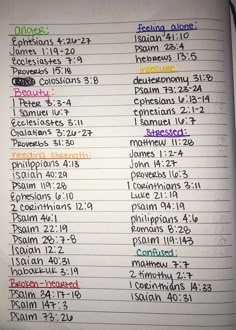 anger:
Ephesians 4:26-27
James 1:19-20
Ecclesiastes 7:9
Proverbs 15:18
Colossians 3:8
Beauty:
1 Peter 3:3-4
1 Samuel 16:7
Ecclesiastes 3:11
Galatians 3:26-27
Proverbs 31:30
needing strength:
philippians 4:13
Isaiah 40:29
Psalm 119:28
Ephesians 6:10
2 Corinthians 12:9
Psalm 46:1
Psalm 22:19
Psalm 28:7-8
Isaiah 12:2
Isaiah 40:31
habakkuk 3:19
Broken-hearted
Psalm 34:17-18
Psalm 147:3
Psalm 73:26
feeling alone:
Isaiah 41:10
Psalm 23:4
hebrews 13:5
deuteronomy 31:8
Psalm 73:23-24
ephesians 6:13-14
ephesians 2:1-2
1 samuel 16:7
Stressed:
matthew 11:28
James 1:2-4
John 14:27
proverbs 16:3
1 Corinthians 3:11
Luke 21:19
psalm 94:19
philippians 4:6
Romans 8:28
psalm 119:143
Confused:
matthew 7:7
2 timothy 2:7
1 Corinthians 14:33
Isaiah 40:31